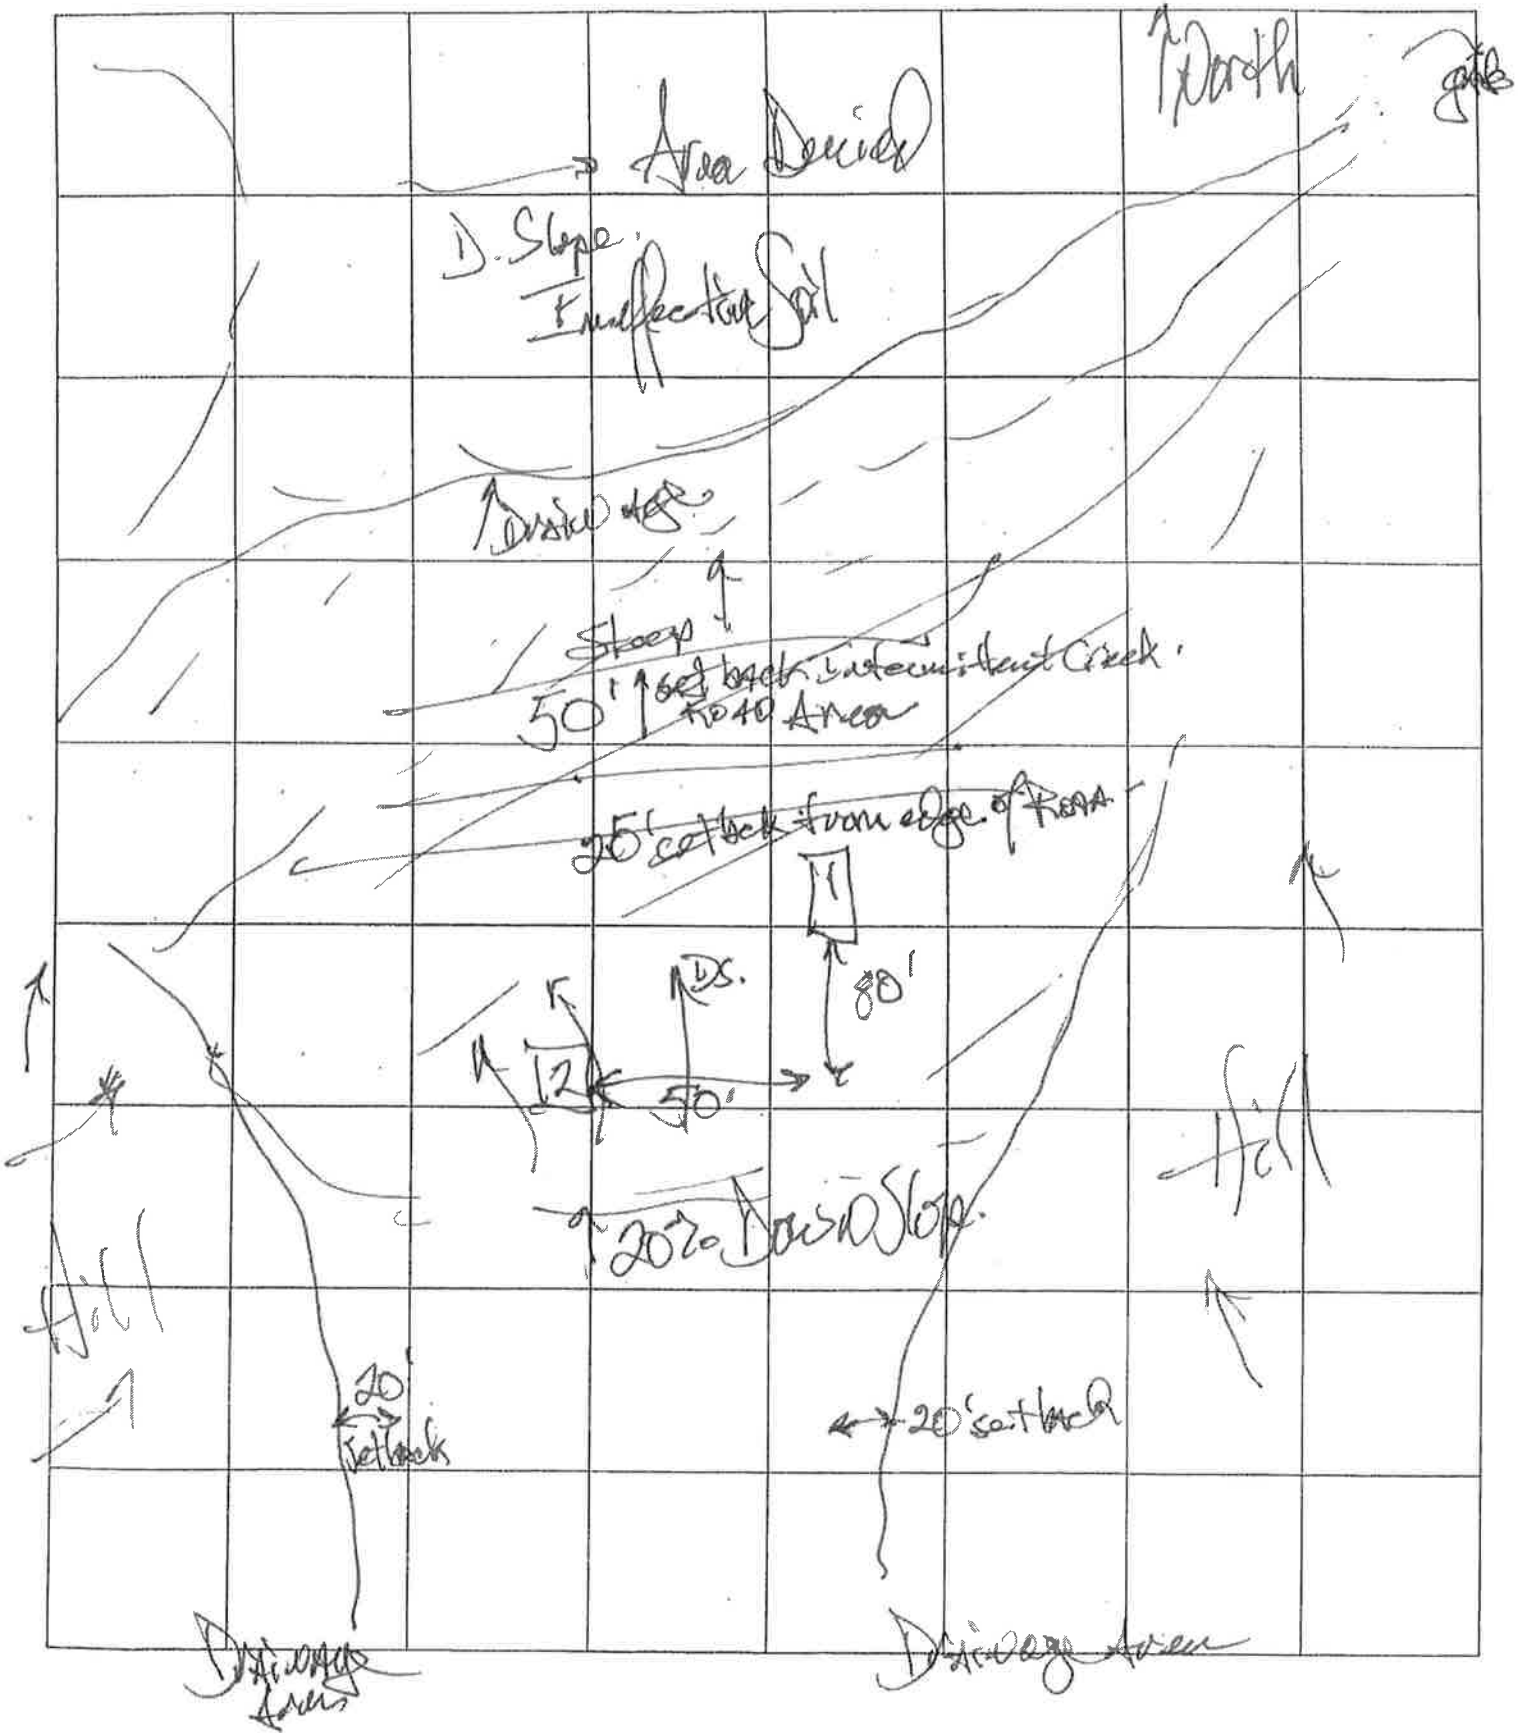 North
gate
Area Denied
D. Slope.
Ineffective Soil
Drainage
Steep
50' set back intermittent Creek.
Road Area
25' setback from edge of Road
1
DS.
80'
12
50'
Hill
20% Down Slope.
Hill
20'
setback
20' setback
Drainage
Area
Drainage Area